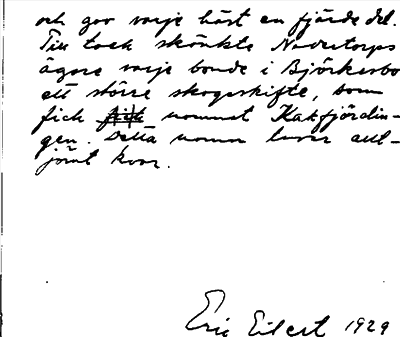 och gav varje häst en fjärdedel.
Till tack skänkte Nodretorps
ägare varje bonde i Björkerbo
ett större skogsskifte, som
fick namnet Kakfjärdin-
gen. Detta namn lever allt-
jämt kvar.
Eric Eilert 1929